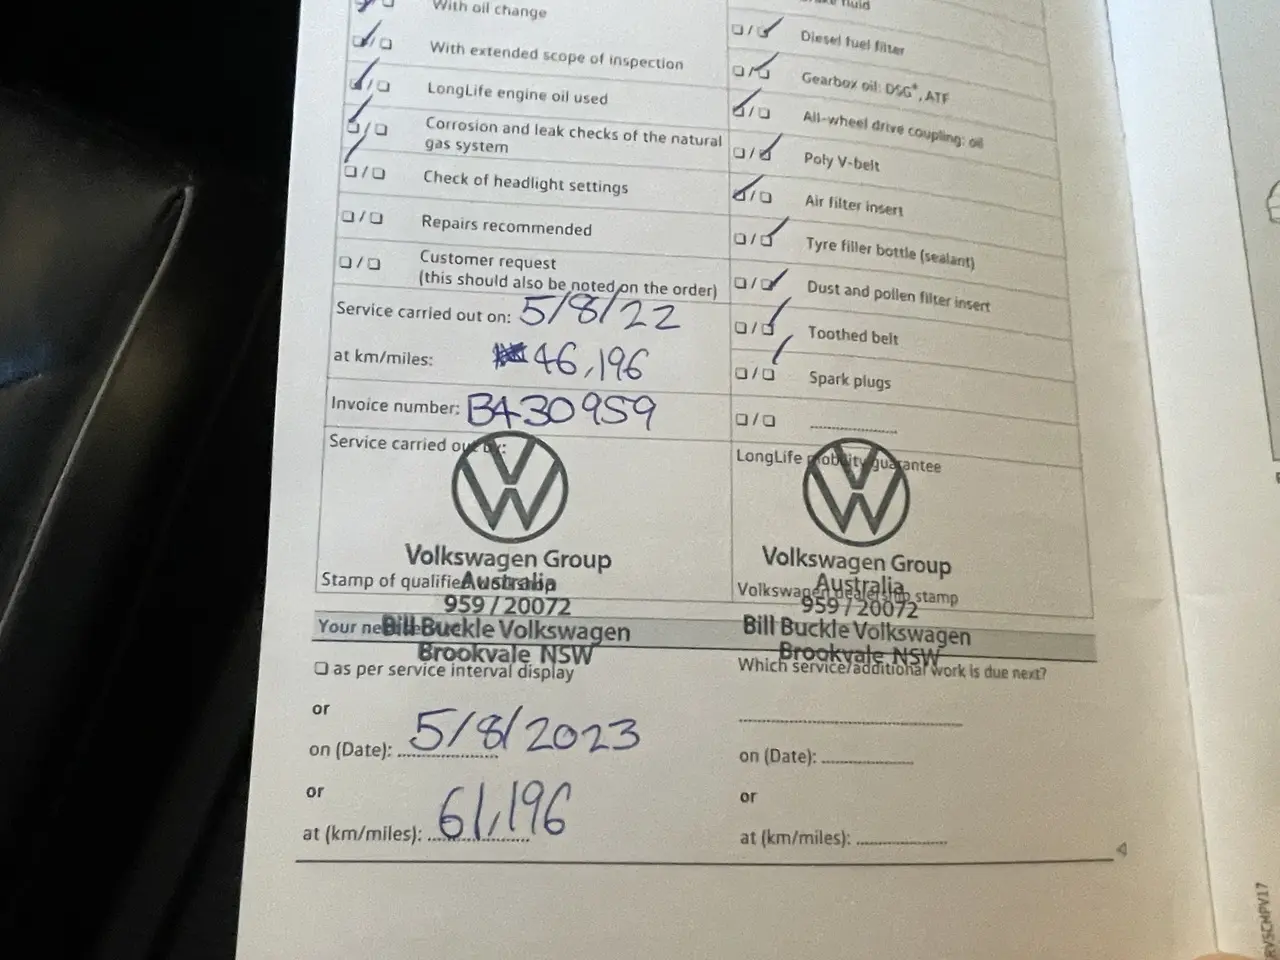 With oil change
With extended scope of inspection
LongLife engine oil used
Corrosion and leak checks of the natural
gas system
Check of headlight settings
Repairs recommended
Customer request
(this should also be noted on the order)
Service carried out on: 5/8/22
at km/miles: 46,196
Invoice number: BA30959
Service carried out by:
Volkswagen Group
Australia
Stamp of qualified
959 / 20072
Bill Buckle Volkswagen
Brookvale NSW
as per service interval display
or
on (Date): 5/8/2023
or
at (km/miles): 61,196
fluid
Diesel fuel filter
Gearbox oil: DSG®, ATF
All-wheel drive coupling: oil
Poly V-belt
Air filter insert
Tyre filler bottle (sealant)
Dust and pollen filter insert
Toothed belt
Spark plugs
LongLife mobility guarantee
Volkswagen Group
Australia
Volkswagen dealership stamp
959 / 20072
Bill Buckle Volkswagen
Brookvale NSW
Which service/additional work is due next?
on (Date):
or
at (km/miles):
RVSCMPV17